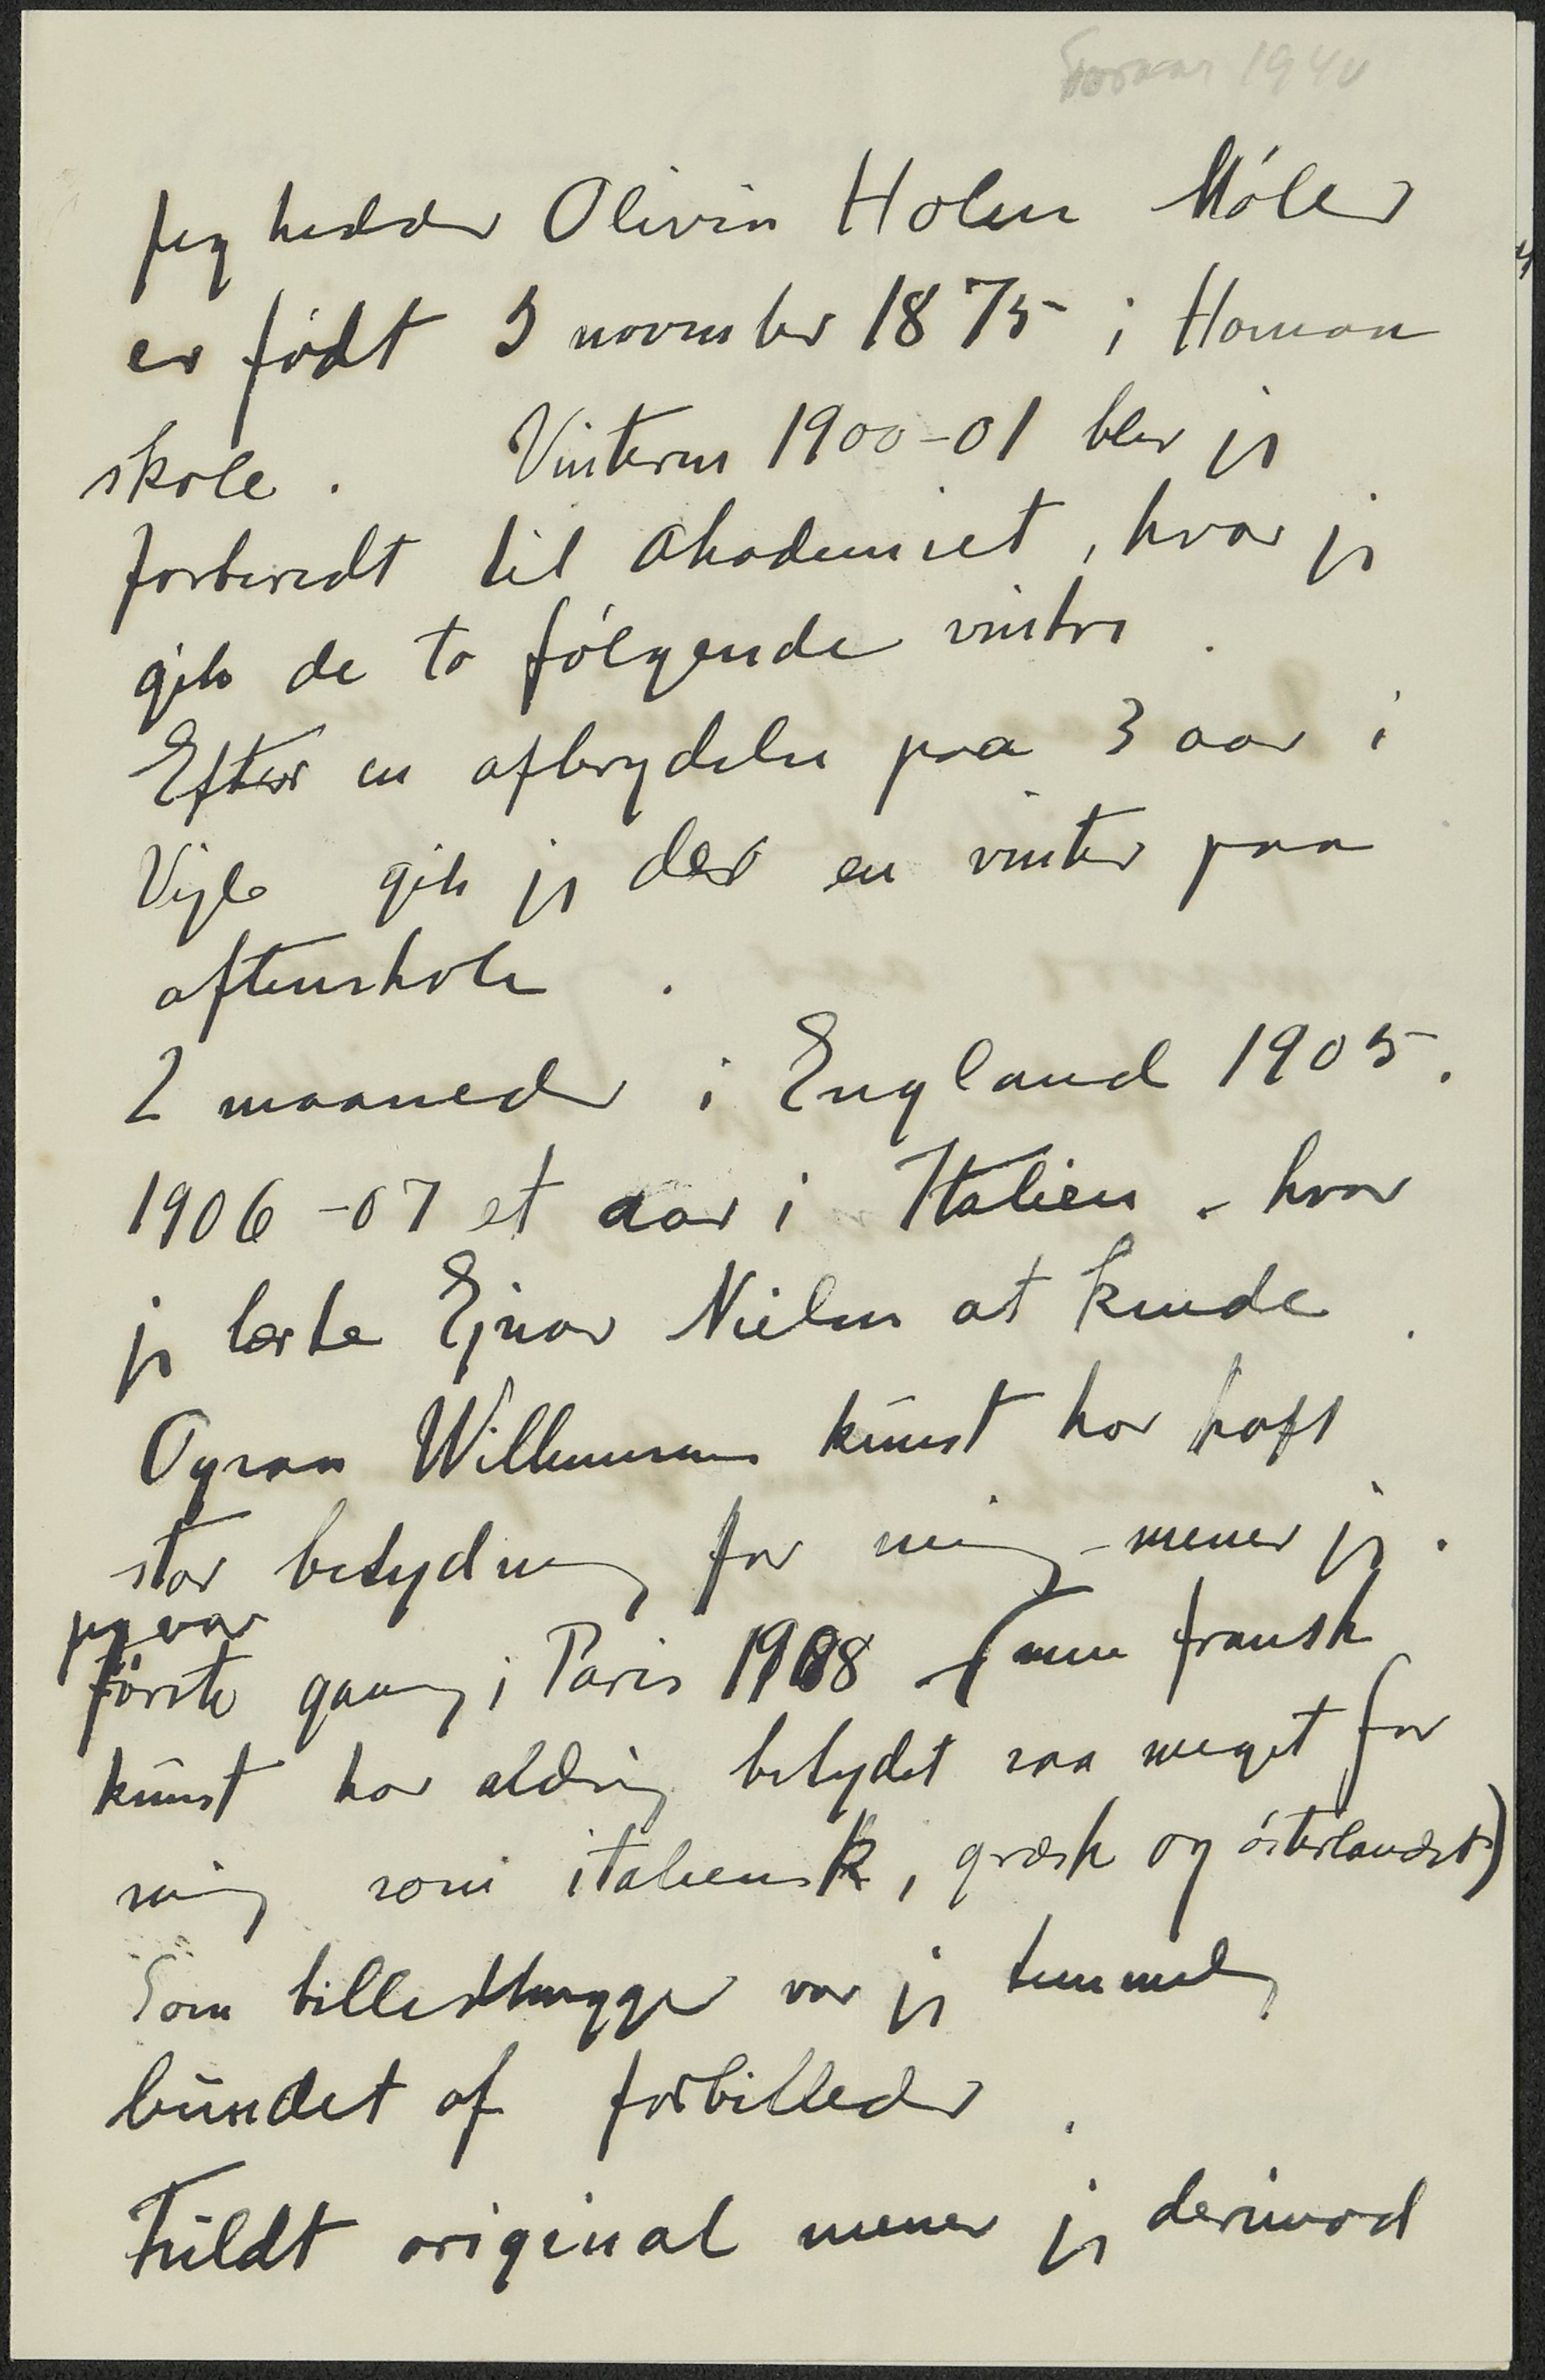 Foraar 1940
Jeg hedder Olivia Holm Møller
er født 5 november 1875 i Homaa
skole . Vinteren 1900-01 blev jeg
forberedt til akademiet, hvor jeg
gik de to følgende vintre .
Efter en afbrydelse paa 3 aar i
Vejle gik jeg der en vinter paa
aftenskole .
2 maaneder i England 1905.
1906-07 et aar i Italien - hvor
jeg lærte Ejnar Nielsen at kende .
Ogsaa Willumsens kunst har haft
stor betydning for mig - mener jeg .
jeg var
første gang i Paris 1908 (men fransk
kunst har aldrig betydet saa meget for
mig som italiensk, græsk og østerlandsk)
Som billedhugger var jeg temmelig
bundet af forbilleder .
Fuldt original mener jeg derimod